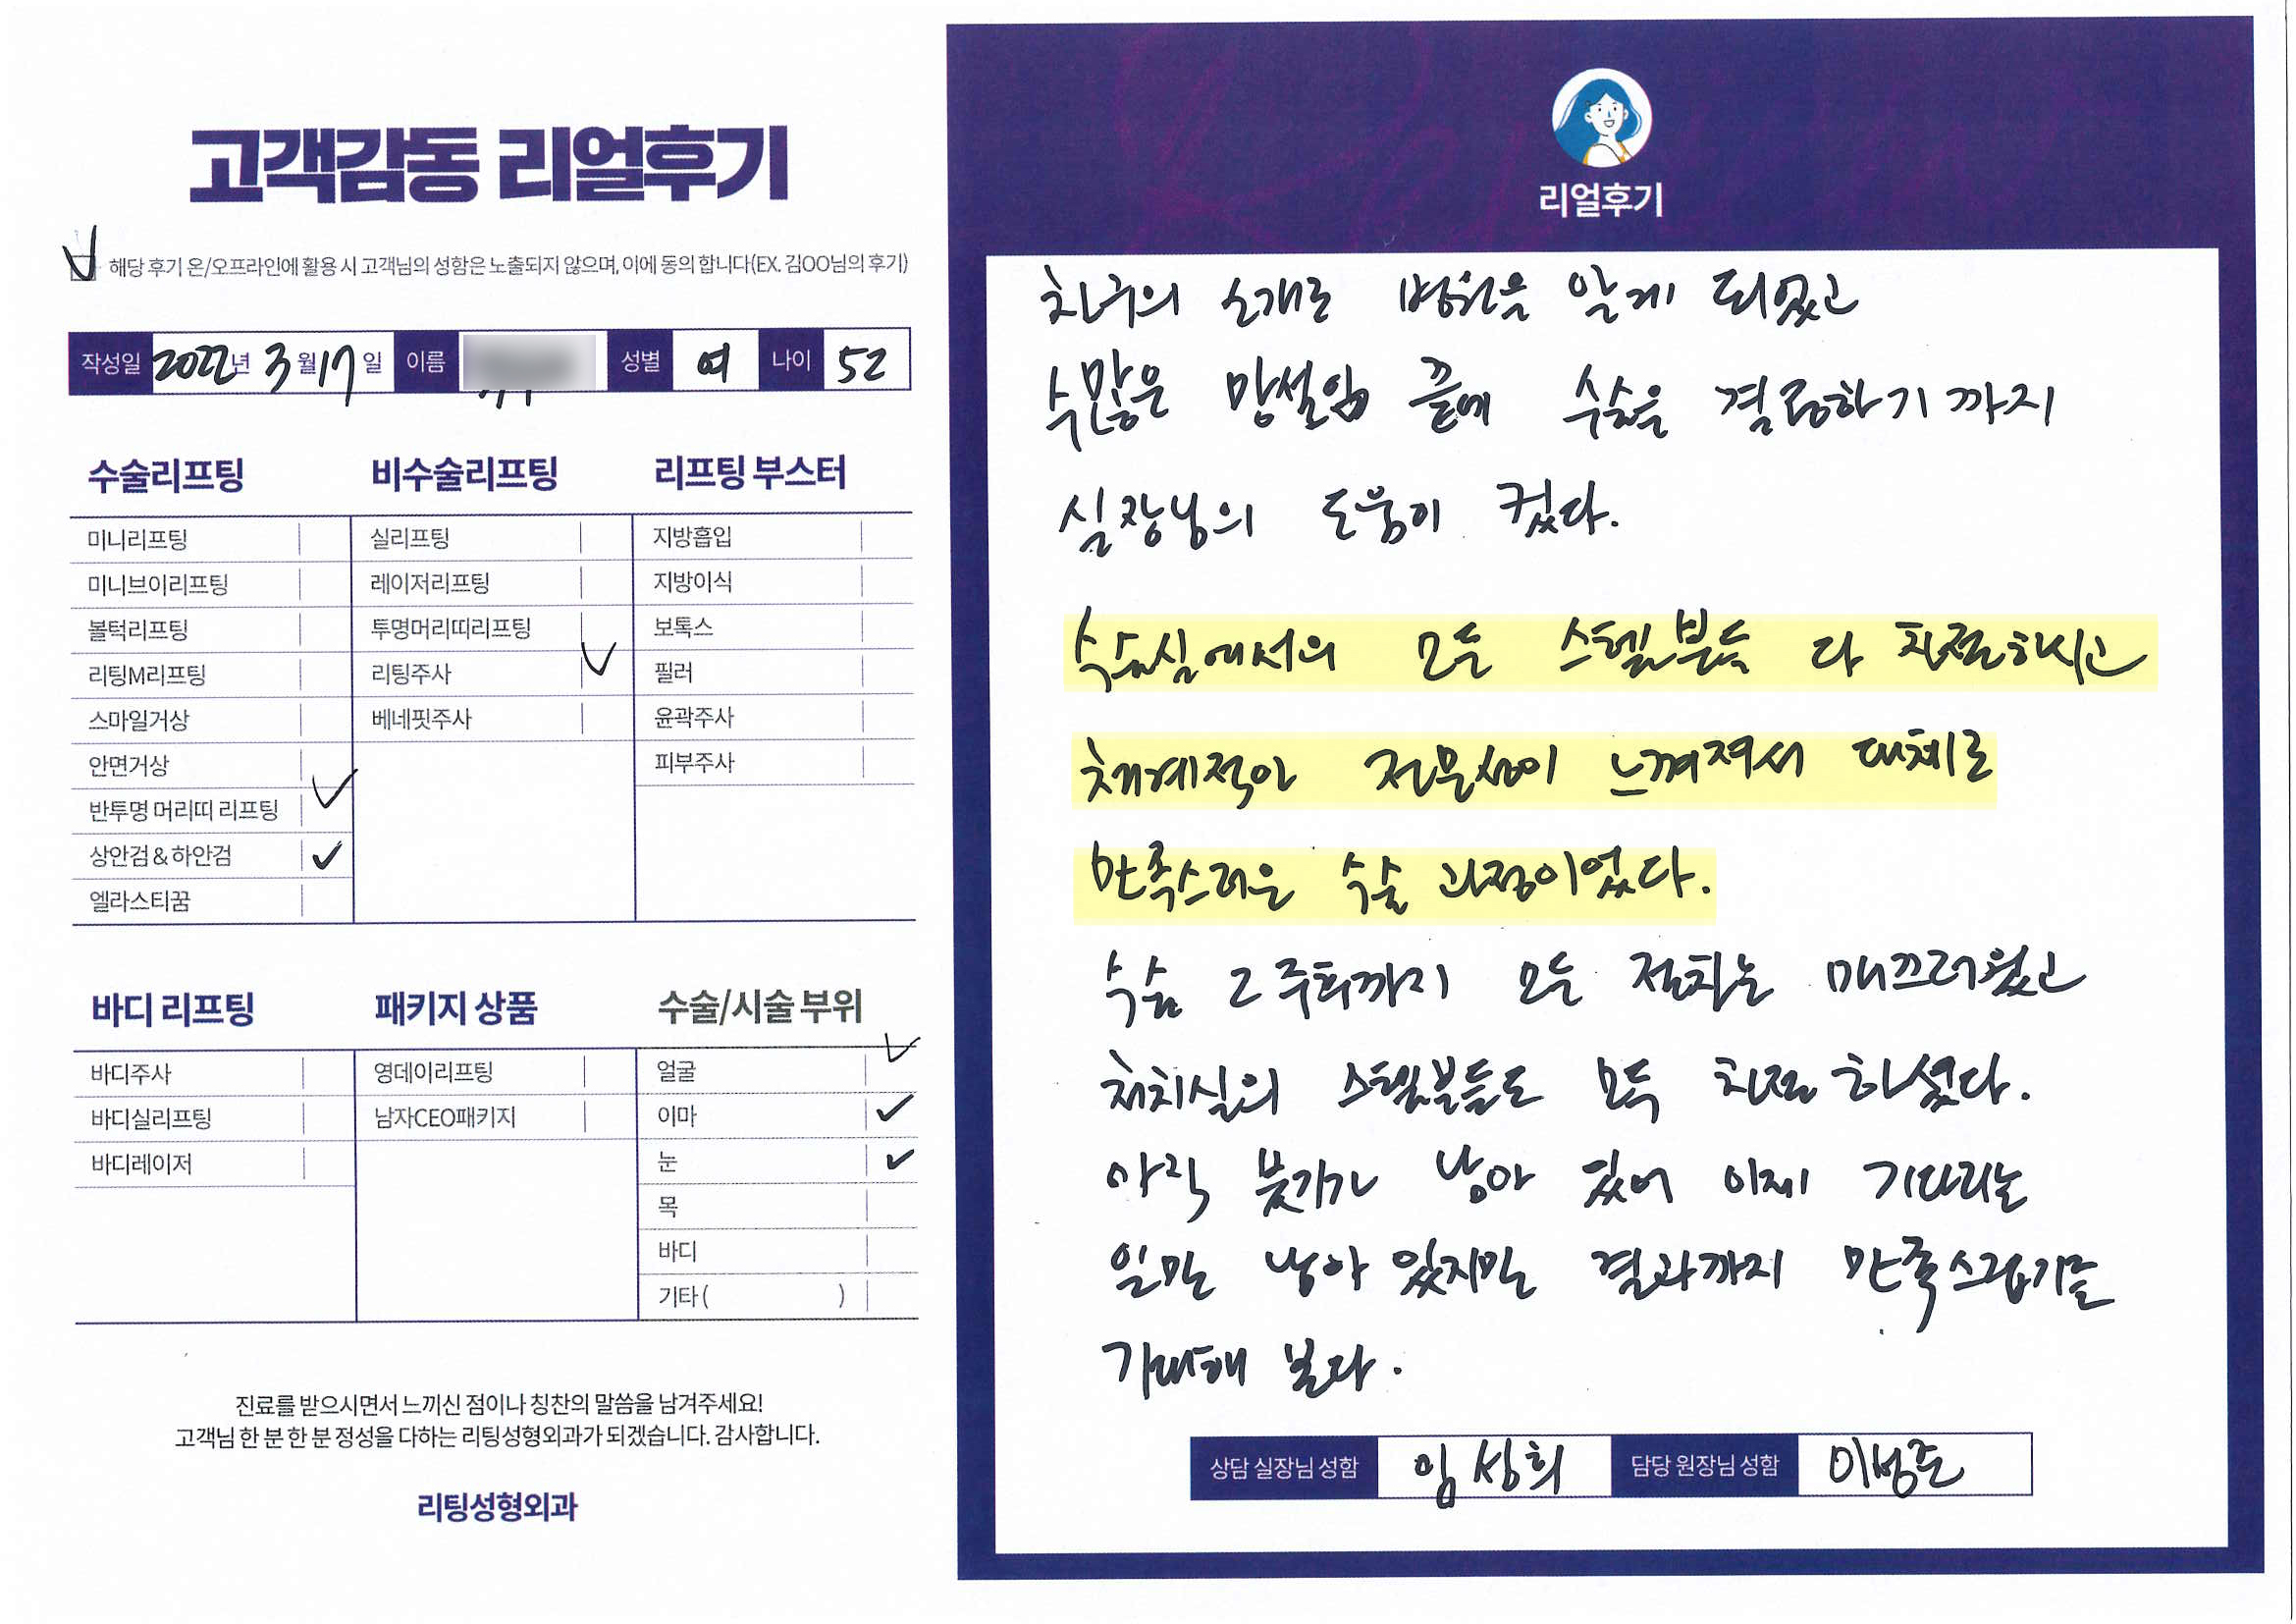 고객감동 리얼후기
해당 후기 온/오프라인에 활용 시 고객님의 성함은 노출되지 않으며, 이에 동의 합니다(EX. 김OO님의 후기)
작성일 2022년 3월 17일 이름 성별 여 나이 52
수술리프팅
미니리프팅
미니브이리프팅
볼턱리프팅
리팅M리프팅
스마일거상
안면거상
반투명 머리띠 리프팅
상안검 & 하안검
엘라스티꿈
비수술리프팅
실리프팅
레이저리프팅
투명머리띠리프팅
리팅주사
베네핏주사
리프팅 부스터
지방흡입
지방이식
보톡스
필러
윤곽주사
피부주사
바디 리프팅
바디주사
바디실리프팅
바디레이저
패키지 상품
영데이리프팅
남자CEO패키지
수술/시술 부위
얼굴
이마
눈
목
바디
기타 ( )
진료를 받으시면서 느끼신 점이나 칭찬의 말씀을 남겨주세요!
고객님 한 분 한 분 정성을 다하는 리팅성형외과가 되겠습니다. 감사합니다.
리팅성형외과
리얼후기
친구의 소개로 병원을 알게 되었고
수많은 망설임 끝에 수술을 결정하기까지
실장님의 도움이 컸다.
수술실에서의 모든 스텝분들 다 친절하시고
체계적인 전문성이 느껴져서 대체로
만족스러운 수술 과정이었다.
수술 2주차까지 모든 절차는 매끄러웠고
처치실의 스텝분들도 모두 친절하셨다.
아직 붓기가 남아 있어 이제 기다리는
일만 남아 있지만 결과까지 만족스럽기를
기대해 본다.
상담 실장님 성함 임성희 담당 원장님 성함 이성준